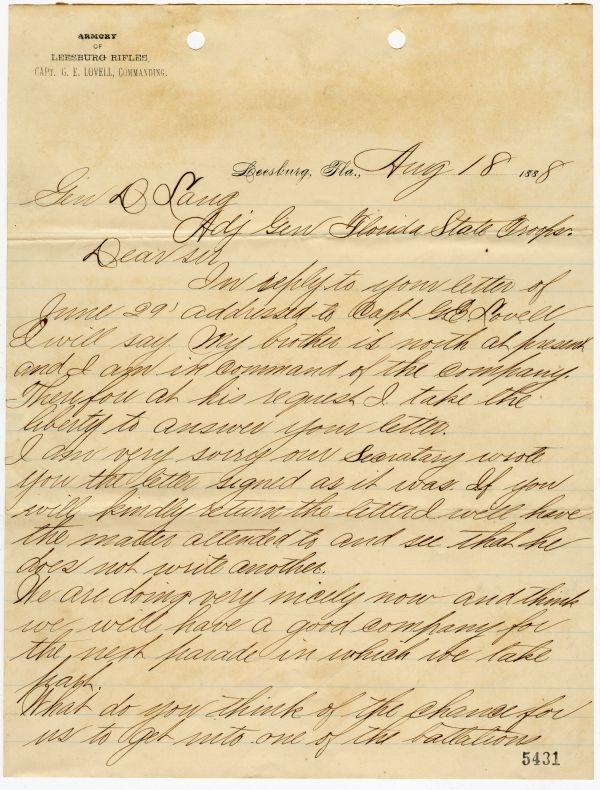 ARMORY
OF
LEESBURG RIFLES,
CAPT. G. E. LOVELL, COMMANDING.
Leesburg, Fla., Aug 18 1888
Gen D Lang
Adj Gen Florida State Troops.
Dear sir
In reply to your letter of
June 29' addressed to Capt G E Lovell
I will say. My brother is north at present
and I am in command of the company.
Therefore at his request I take the
liberty to answer your letter.
I am very sorry our Secratary wrote
you the letter signed as it was. If you
will kindly return the letter I will have
the matter attended to and see that he
does not write another.
We are doing very nicely now and think
we will have a good company for
the next parade in which we take
part.
What do you think of the chance for
us to get into one of the battalions
5431